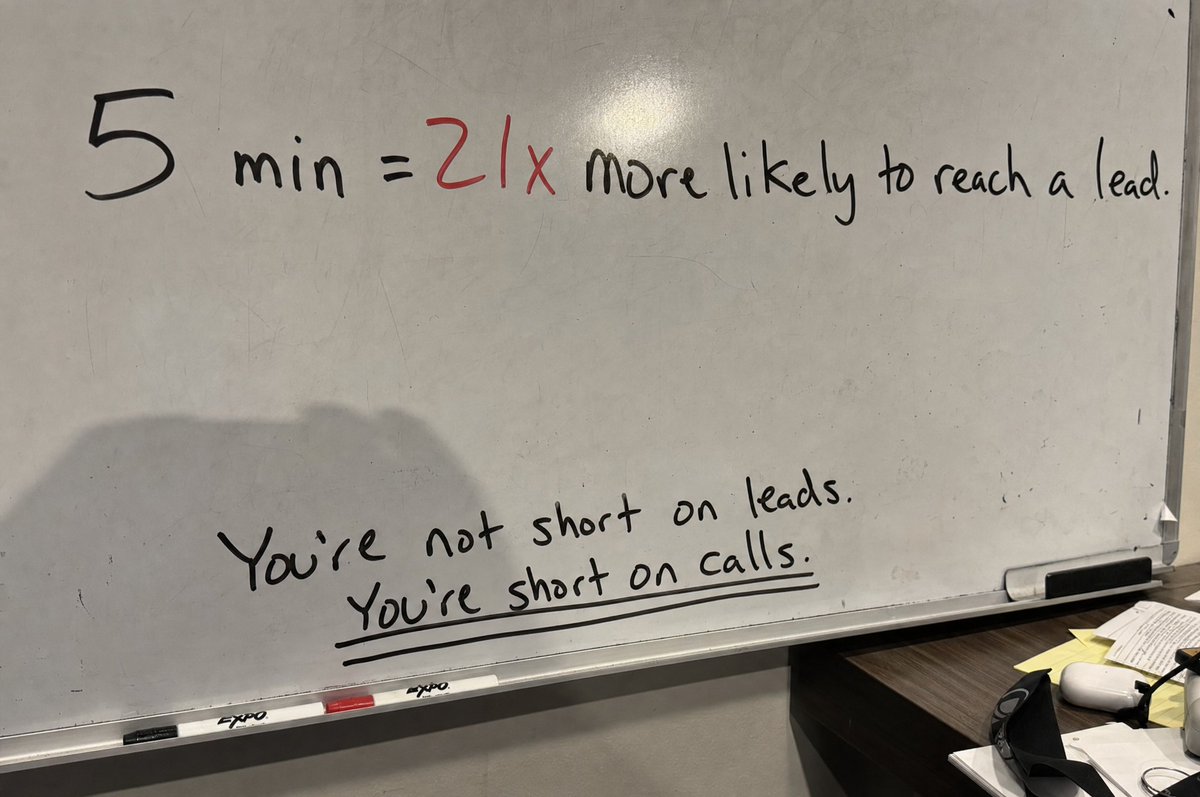 5 min = 21x more likely to reach a lead.
You're not short on leads.
You're short on calls.
EXPO
EXPO